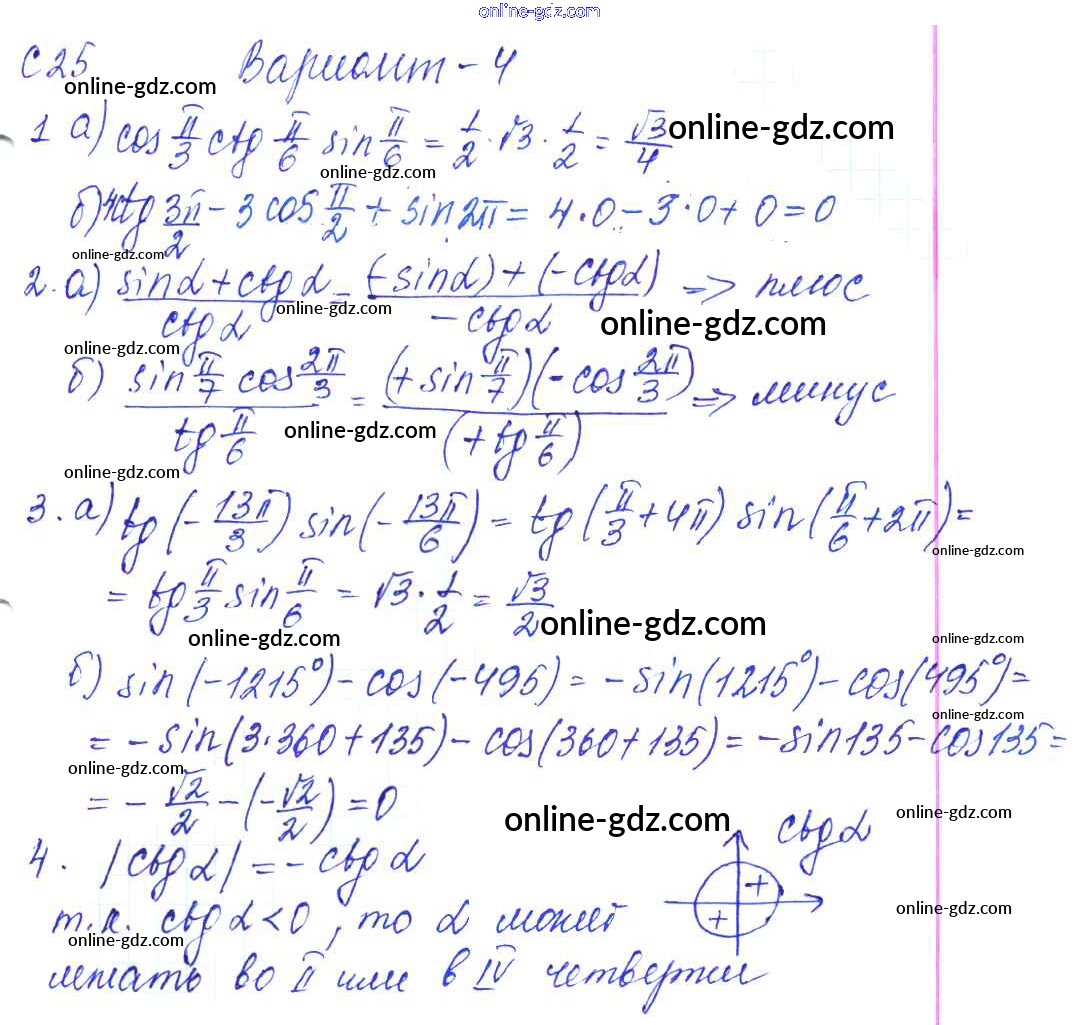 online-gdz.com
С25 Вариант - 4
online-gdz.com
1 а) cos π/3 ctg π/6 sin π/6 = 1/2 · √3 · 1/2 = √3/4
online-gdz.com
online-gdz.com
б) 4ctg 3π/2 - 3 cos π/2 + sin 2π = 4·0 - 3·0 + 0 = 0
online-gdz.com
2. а) (sin α + ctg α)/(ctg α) = ((-sin α) + (-ctg α))/(-ctg α) => плюс
online-gdz.com
online-gdz.com
online-gdz.com
б) (sin π/7 cos 2π/3)/(tg π/6) = ((+ sin π/7)(- cos 2π/3))/((+ tg π/6)) => минус
online-gdz.com
online-gdz.com
3. а) tg (- 13π/3) sin (- 13π/6) = tg (π/3 + 4π) sin (π/6 + 2π) =
online-gdz.com
= tg π/3 sin π/6 = √3 · 1/2 = √3/2
online-gdz.com
online-gdz.com
online-gdz.com
б) sin (-1215°) - cos (-495) = - sin (1215°) - cos (495°) =
online-gdz.com
= - sin (3·360 + 135) - cos (360 + 135) = - sin 135 - cos 135 =
online-gdz.com
= - √2/2 - (- √2/2) = 0
online-gdz.com
online-gdz.com
4. |ctg α| = - ctg α
ctg α
+
+
т.к. ctg α < 0, то α может
online-gdz.com
online-gdz.com
лежать во II или в IV четверти